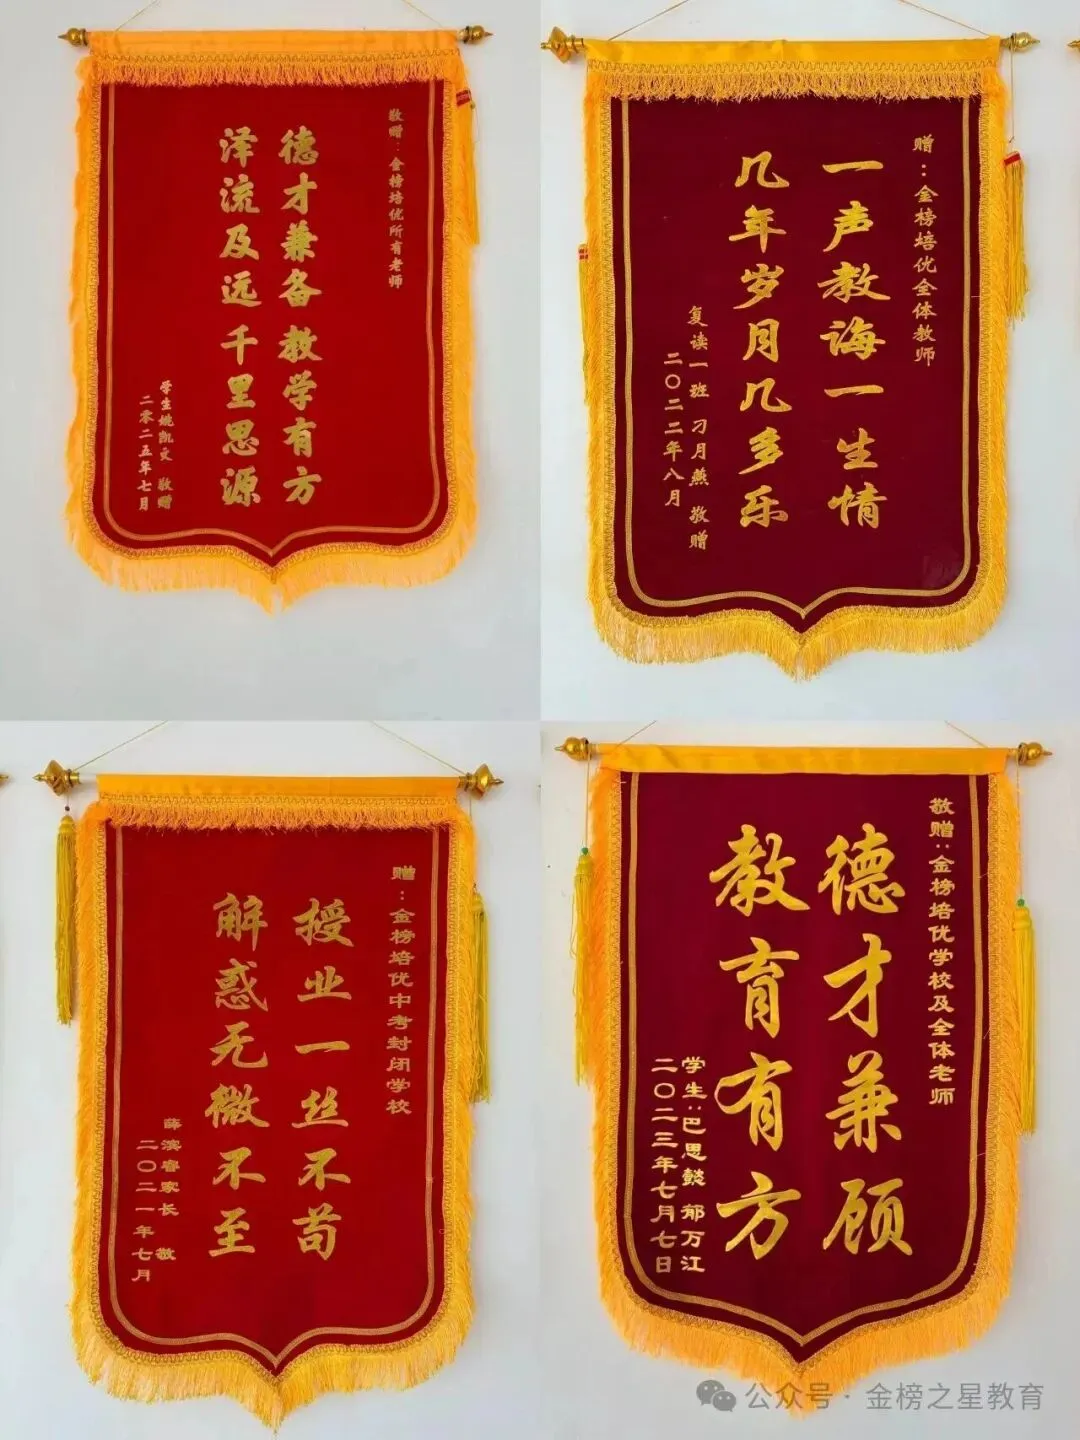 敬赠：金榜培优所有老师
德才兼备 教学有方
泽流及远 千里思源
学生姚凯文 敬赠
二零二五年七月
赠：金榜培优全体教师
一声教诲一生情
几年岁月几多乐
复读一班 刁月燕 敬赠
二〇二二年八月
赠：金榜培优中考封闭学校
授业一丝不苟
解惑无微不至
薛滨睿家长 敬
二〇二一年七月
敬赠：金榜培优学校及全体老师
德才兼顾
教育有方
学生：巴思懿 郁万江
二〇二三年七月七日
公众号·金榜之星教育